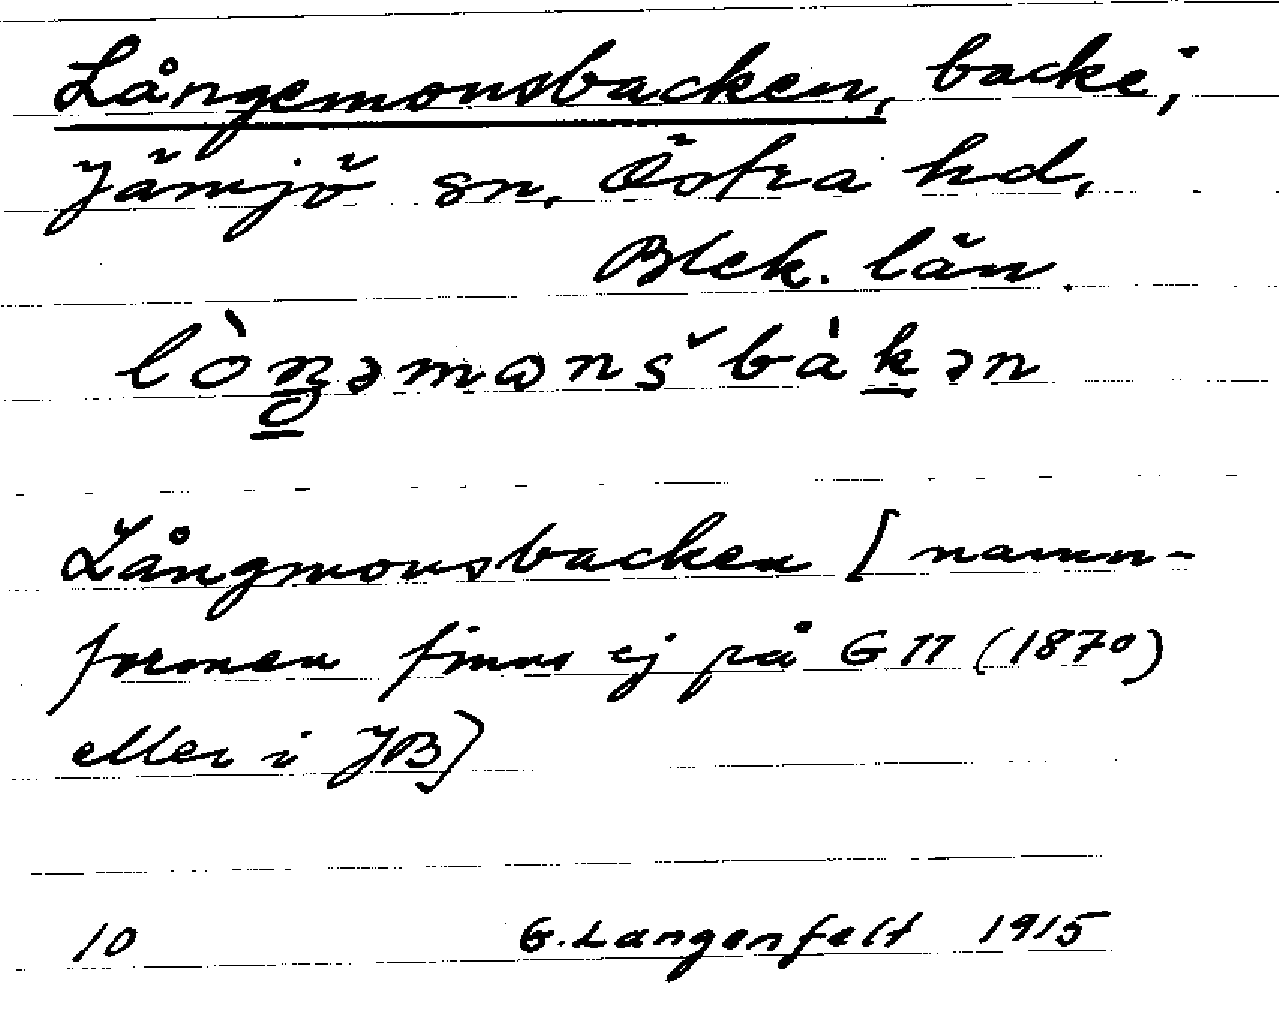 Långemonsbacken, backe i
Jämjö sn, Östra hd,
Blek. län.
lòŋəmɷnsˇbàkən
Långmonsbacken [namn-
formen finns ej på GII (1870)
eller i JB]
10 G. Langenfelt 1915